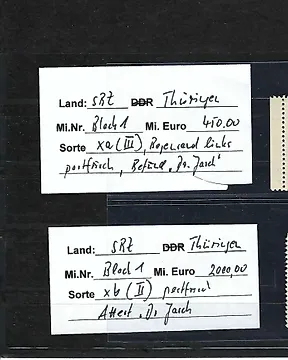 Land: SBZ DDR Thüringen
Mi.Nr. Block 1 Mi. Euro 450,00
Sorte xa (III), Bogenrand links
postfrisch, Befund "Dr. Jasch"
Land: SBZ DDR Thüringen
Mi.Nr. Block 1 Mi. Euro 2000,00
Sorte xb (II) postfrisch
Attest, Dr. Jasch